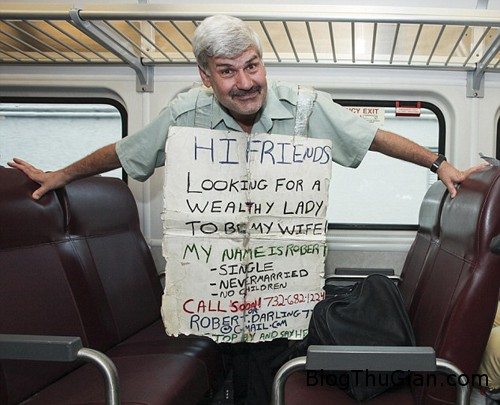 HI FRIENDS
LOOKING FOR A
WEALTHY LADY
TO BE MY WIFE!
MY NAME IS ROBERT
- SINGLE
- NEVER MARRIED
- NO CHILDREN
CALL SOON! 732-682-1224
OR
ROBERT.DARLING77
@GMAIL.COM
STOP BY AND SAY HE
EXIT
BlogThuGian.com